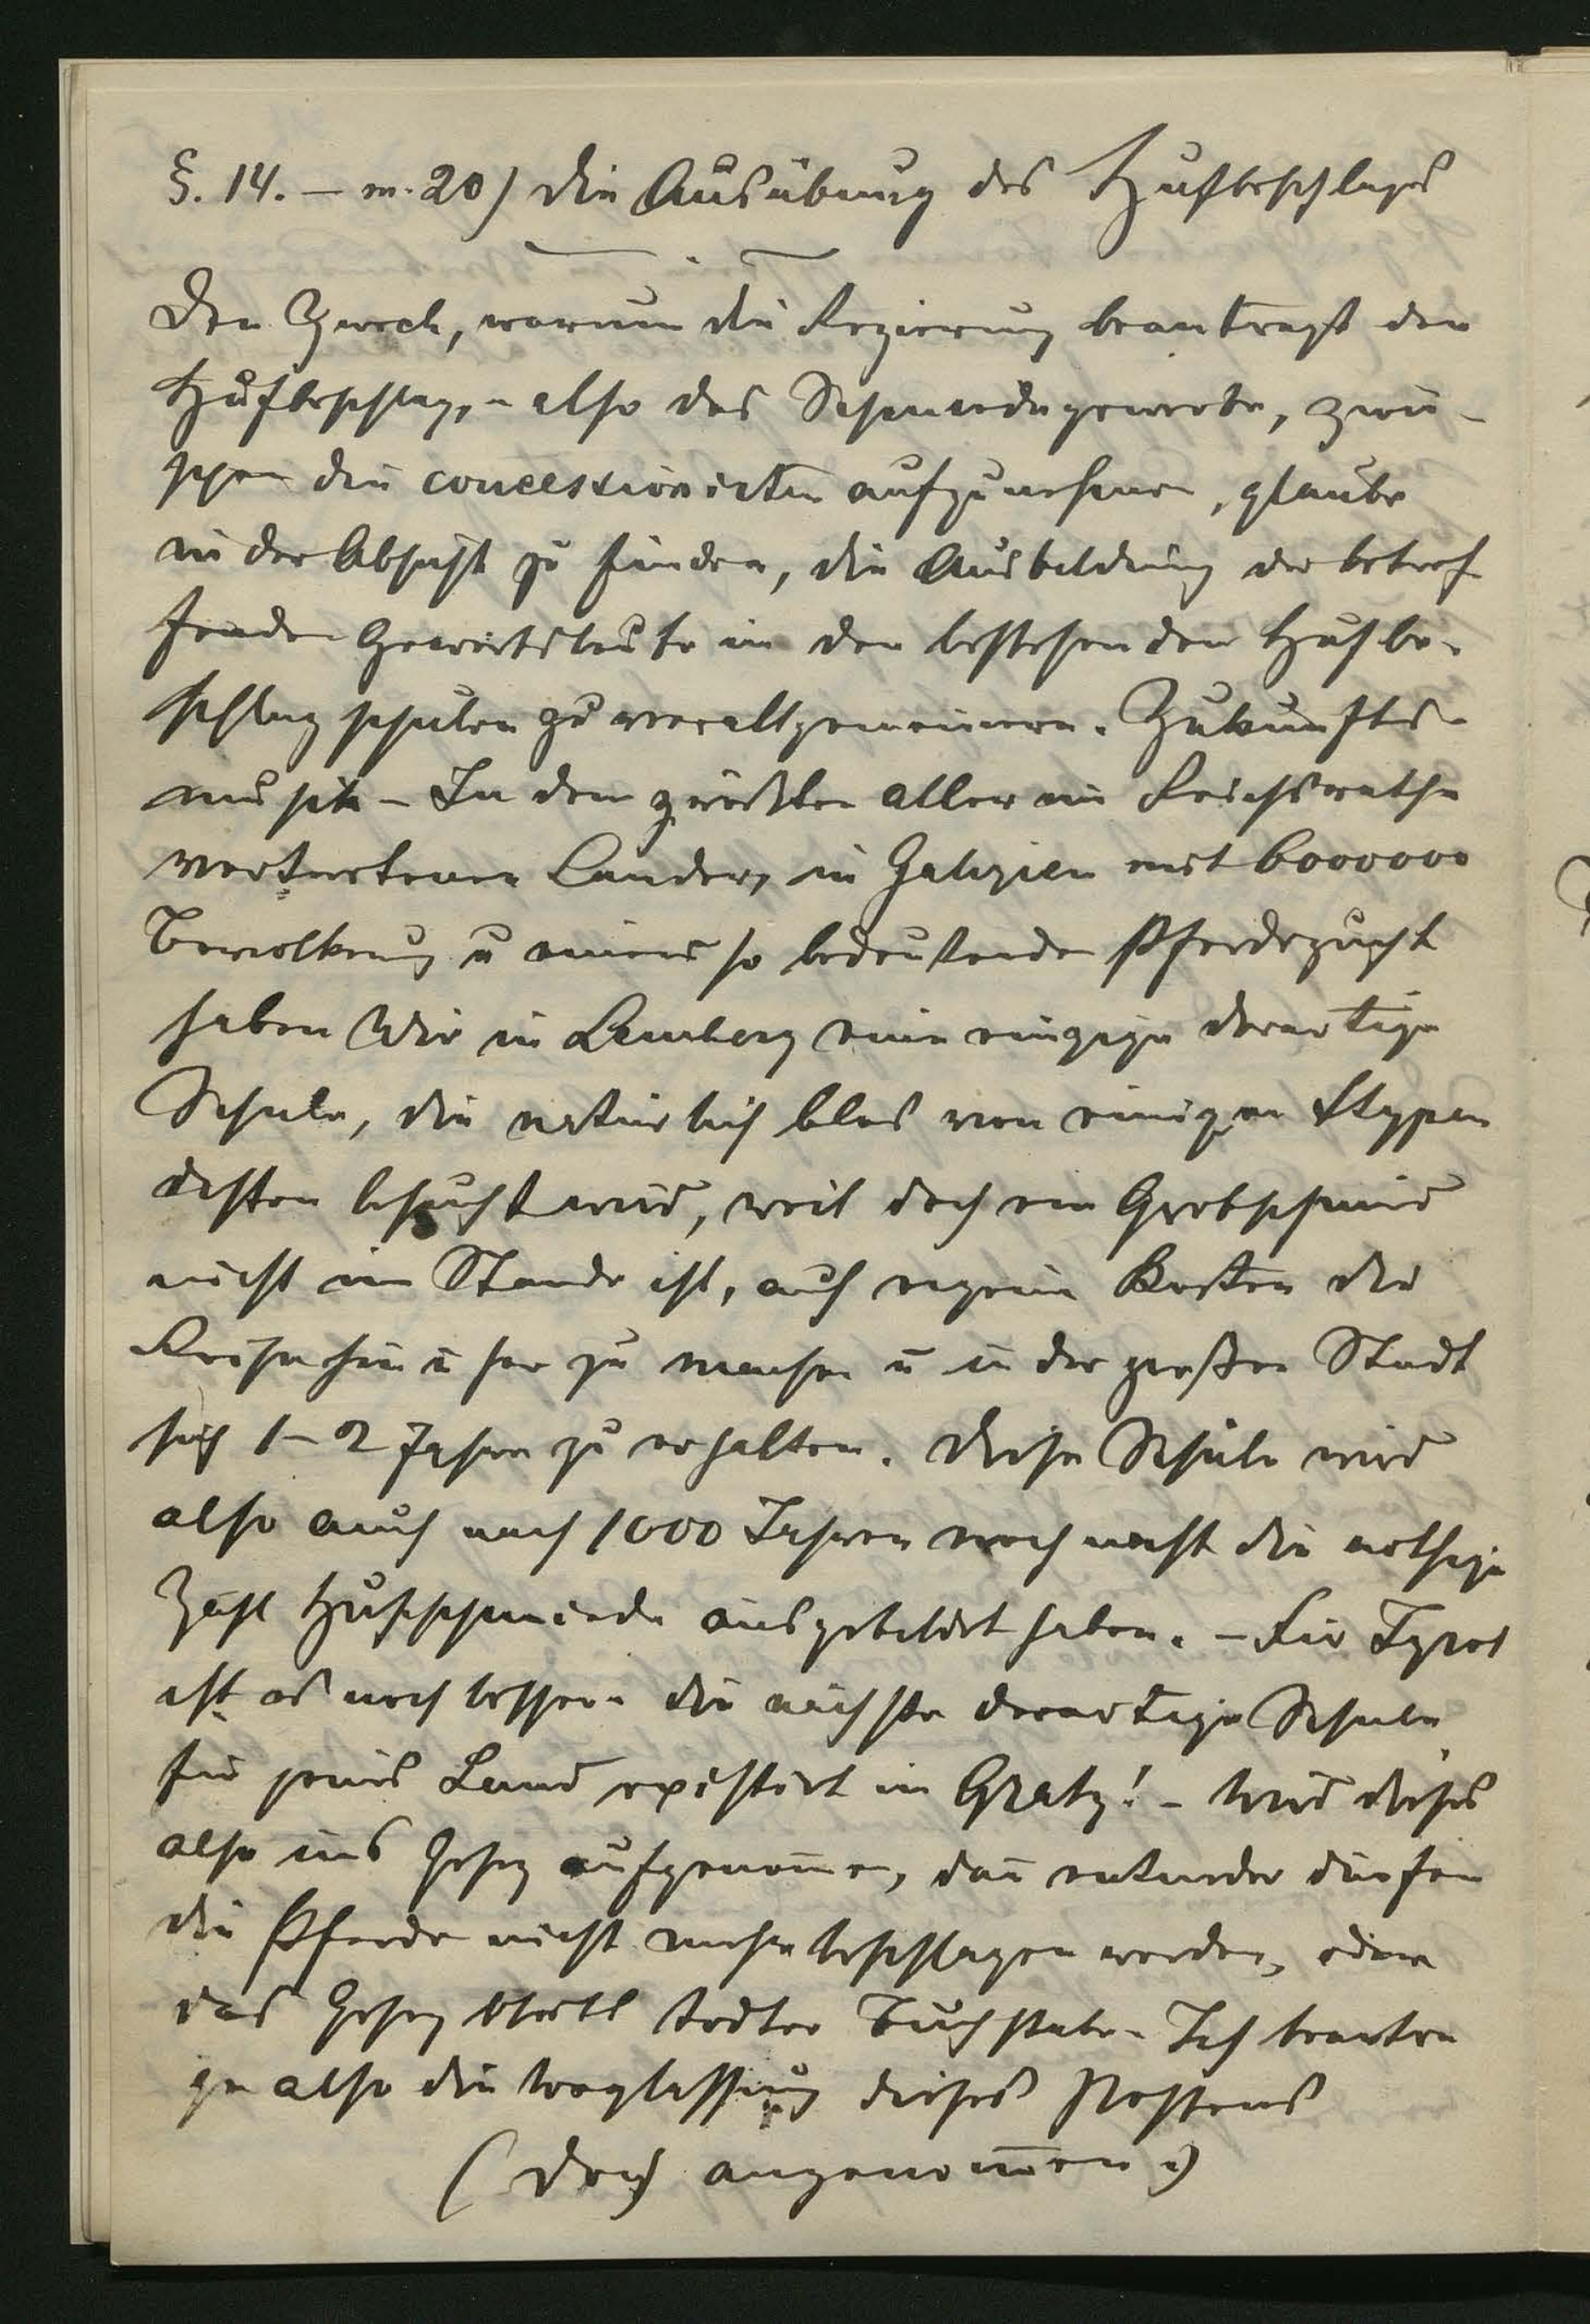 §. 14. – m. 20) die Ausübung des Hufbeschlages
Den Zweck, warum die Regierung beantragt den
Hufbeschlag, – also das Schmiedegewerbe, zwi-
schen die concessionirten aufzunehmen, glaube
in der Absicht zu finden, die Ausbildung der betref
fenden Gewerbsleute in den bestehenden Hufbe-
schlagschulen zu verallgemeinern. Zukunfts-
musik – In dem größten aller im Reichsrathe
vertretenen Länder, in Galizien mit 6000000
Bevolkerung u einer so bedeutenden Pferdezucht
haben Wir in Lemberg eine einzige derartige
Schule, die natürlich blos von einigen Stypen
disten besucht wird, weil doch ein Grobschmid
nicht im Stande ist, auf eigene Kosten die
Reise hin u her zu machen u in der großen Stadt
sich 1–2 Jahre zu erhalten. Diese Schule wird
also auch nach 1000 Jahren noch nicht die nothige
Zahl Hufschmiede ausgebildet haben. – Für Tyrol
ist es noch besser – die nächste derartige Schule
für jenes Land existirt in Gratz! – Wird dieses
also ins Gesez aufgenom̄en, dan̄ entweder dürfen
die Pferde nicht mehr beschlagen werden, oder
das Gesez bleibt todter Buchstabe – Ich beantra
ge also die Weglassung dieses Postens
(doch angenom̄en)